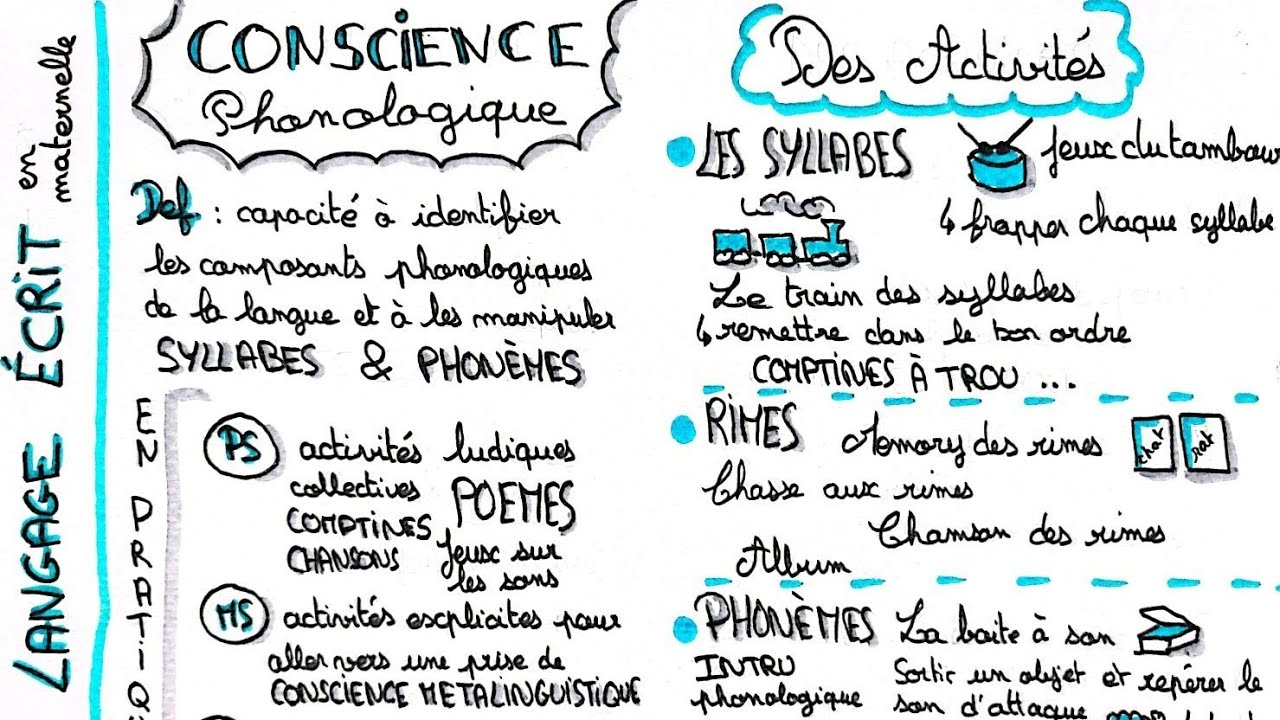 LANGAGE ÉCRIT
en
maternelle
CONSCIENCE
Phonologique
Def : capacité à identifier
les composants phonologiques
de la langue et à les manipuler
SYLLABES & PHONÈMES
EN PRATIQU
PS activités ludiques
collectives POEMES
COMPTINES
CHANSONS Jeux sur
les sons
MS activités explicites pour
aller vers une prise de
CONSCIENCE METALINGUISTIQUE
Des Activités
LES SYLLABES Jeux du tambour
↳ frapper chaque syllabe
Le train des syllabes
↳ remettre dans le bon ordre
COMPTINES À TROU ...
RIMES Memory des rimes chat rat
Chasse aux rimes
Chanson des rimes
Album
PHONÈMES La boite à son
INTRU Sortir un objet et repérer le
phonologique son d'attaque